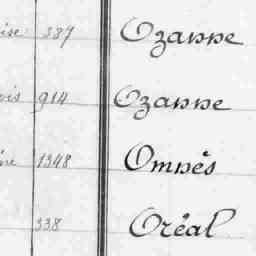 ise 387 Ozanne
ois 914 Ozanne
ne 1348 Omnès
338 Oréal